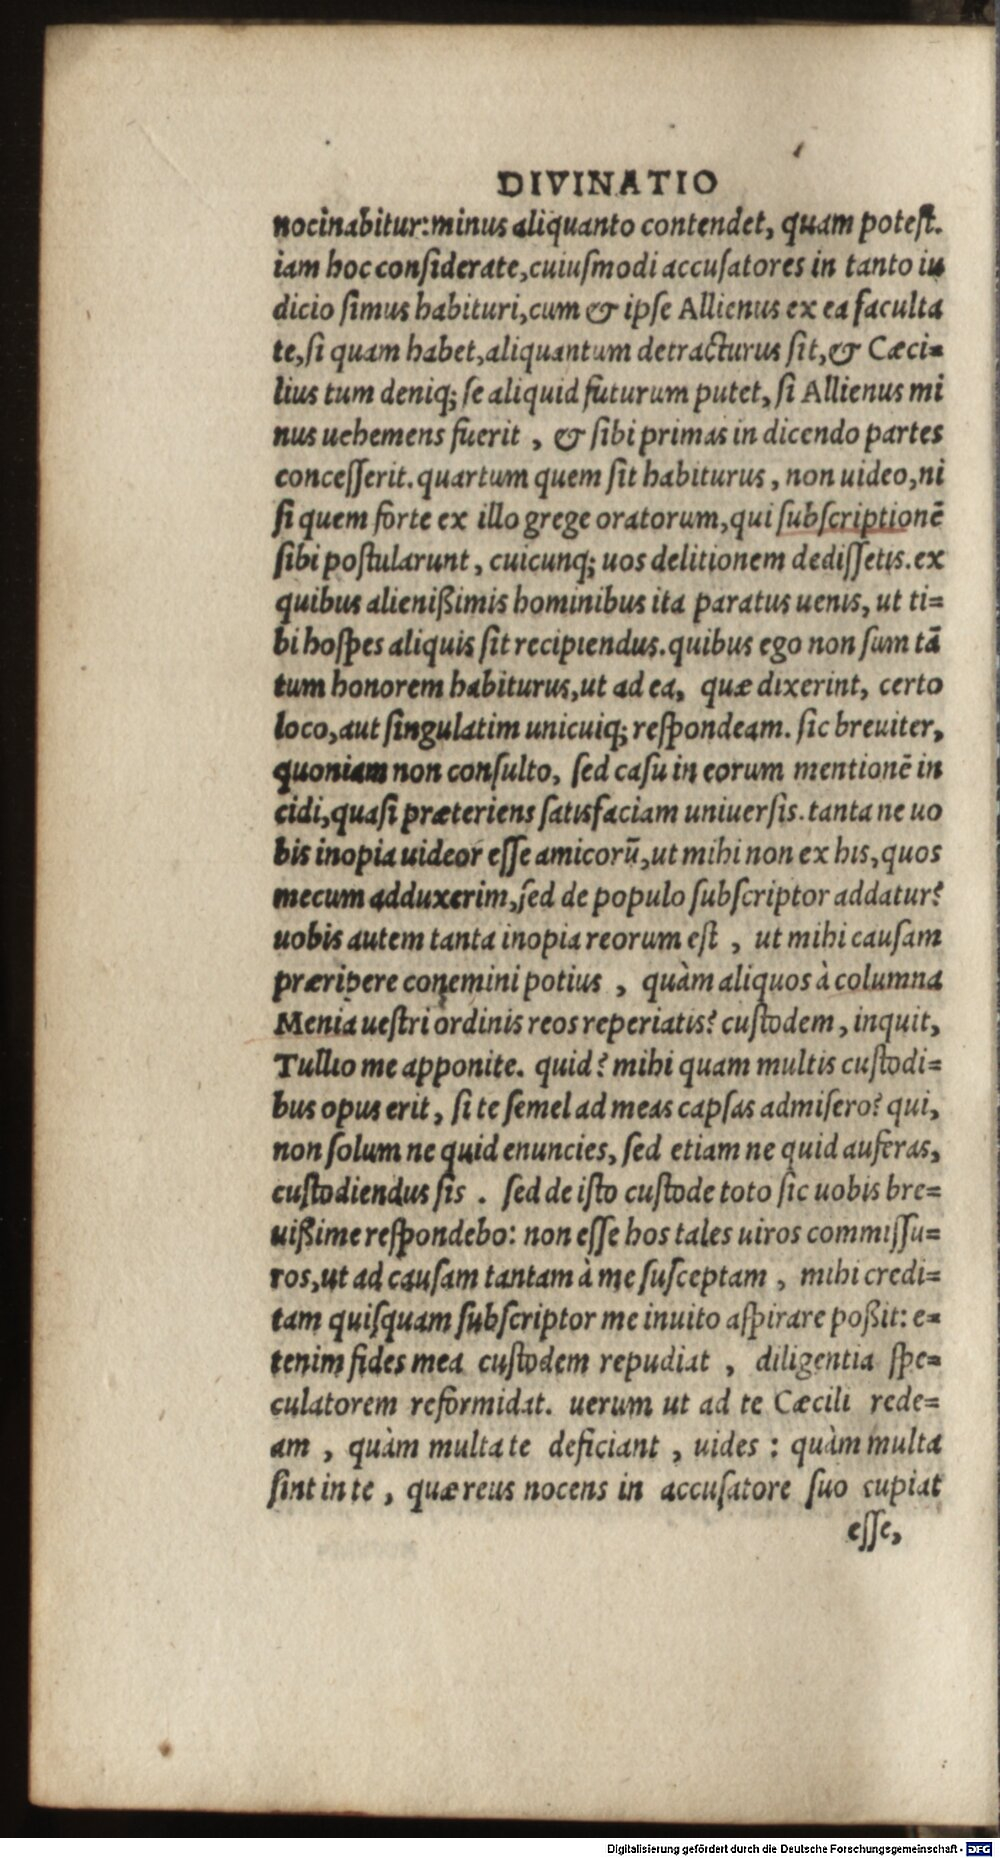 DIVINATIO
nocinabitur:minus aliquanto contendet, quam poteſt.
iam hoc conſiderate,cuiuſmodi accuſatores in tanto iu
dicio ſimus habituri,cum & ipſe Allienus ex ea faculta
te,ſi quam habet,aliquantum detracturus ſit,& Cæci=
lius tum deniq; ſe aliquid futurum putet, ſi Allienus mi
nus uehemens fuerit , & ſibi primas in dicendo partes
conceſſerit. quartum quem ſit habiturus , non uideo,ni
ſi quem forte ex illo grege oratorum,qui ſubſcriptionē
ſibi poſtularunt , cuicunq; uos delitionem dediſſetis. ex
quibus alienißimis hominibus ita paratus uenis, ut ti=
bi hoſpes aliquis ſit recipiendus. quibus ego non ſum tā
tum honorem habiturus,ut ad ea, quæ dixerint, certo
loco,aut ſingulatim unicuiq; reſpondeam. ſic breuiter,
quoniam non conſulto, ſed caſu in eorum mentionē in
cidi,quaſi præteriens ſatisfaciam uniuerſis. tanta ne uo
bis inopia uideor eſſe amicorū,ut mihi non ex his,quos
mecum adduxerim,ſed de populo ſubſcriptor addatur?
uobis autem tanta inopia reorum eſt , ut mihi cauſam
præripere conemini potius , quàm aliquos à columna
Menia ueſtri ordinis reos reperiatis? cuſtodem, inquit,
Tullio me apponite. quid? mihi quam multis cuſtodi=
bus opus erit, ſi te ſemel ad meas capſas admiſero? qui,
non ſolum ne quid enuncies, ſed etiam ne quid auferas,
cuſtodiendus ſis . ſed de iſto cuſtode toto ſic uobis bre=
uißime reſpondebo: non eſſe hos tales uiros commiſſu=
ros,ut ad cauſam tantam à me ſuſceptam , mihi credi=
tam quiſquam ſubſcriptor me inuito aſpirare poßit: e=
tenim fides mea cuſtodem repudiat , diligentia ſpe=
culatorem reformidat. uerum ut ad te Cæcili rede=
am , quàm multa te deficiant , uides : quàm multa
ſint in te , quæ reus nocens in accuſatore ſuo cupiat
eſſe,
Digitalisierung gefördert durch die Deutsche Forschungsgemeinschaft - DFG